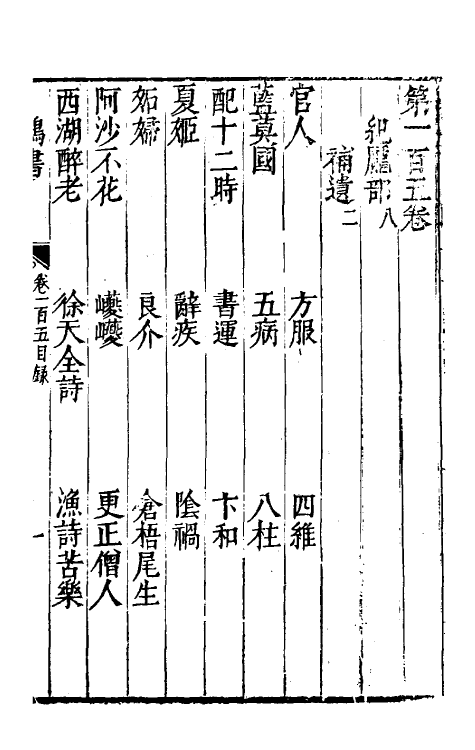 第一百五卷
紀麗部八
補遺二
官人 方服 四維
藍莫國 五病 八柱
配十二時 書運 卞和
夏姬 辭疾 陰禍
妬婦 良介 倉梧尾生
阿沙不花 巙巙 更正僧人
西湖醉老 徐天全詩 漁詩苦樂
鴻書 卷一百五目錄 一